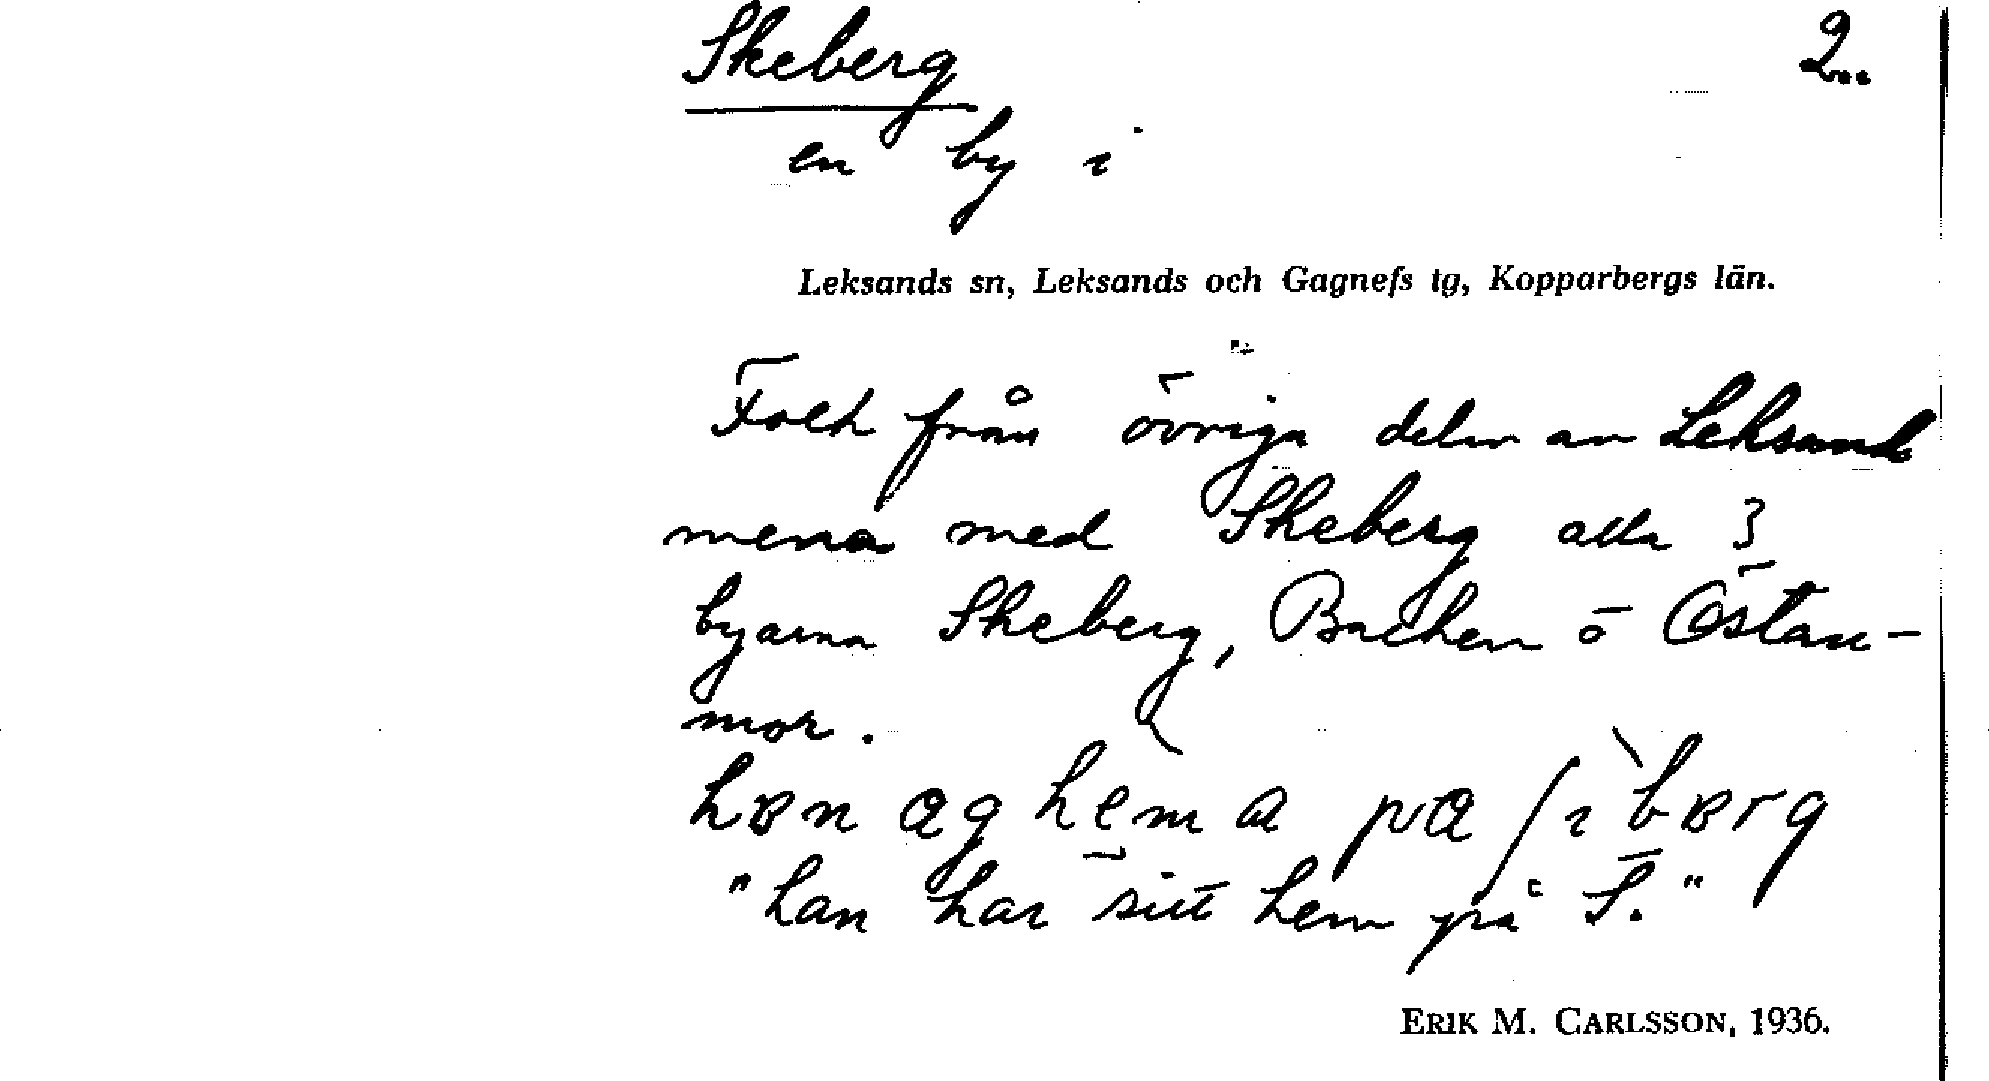 Skeberg 2..
en by i
Leksands sn, Leksands och Gagnefs tg, Kopparbergs län.
Folk från övriga delar av Leksand
mena med Skeberg alla 3
byarna Skeberg, Backen o Östan-
mor.
"han har sitt hem på S."
ERIK M. CARLSSON, 1936.